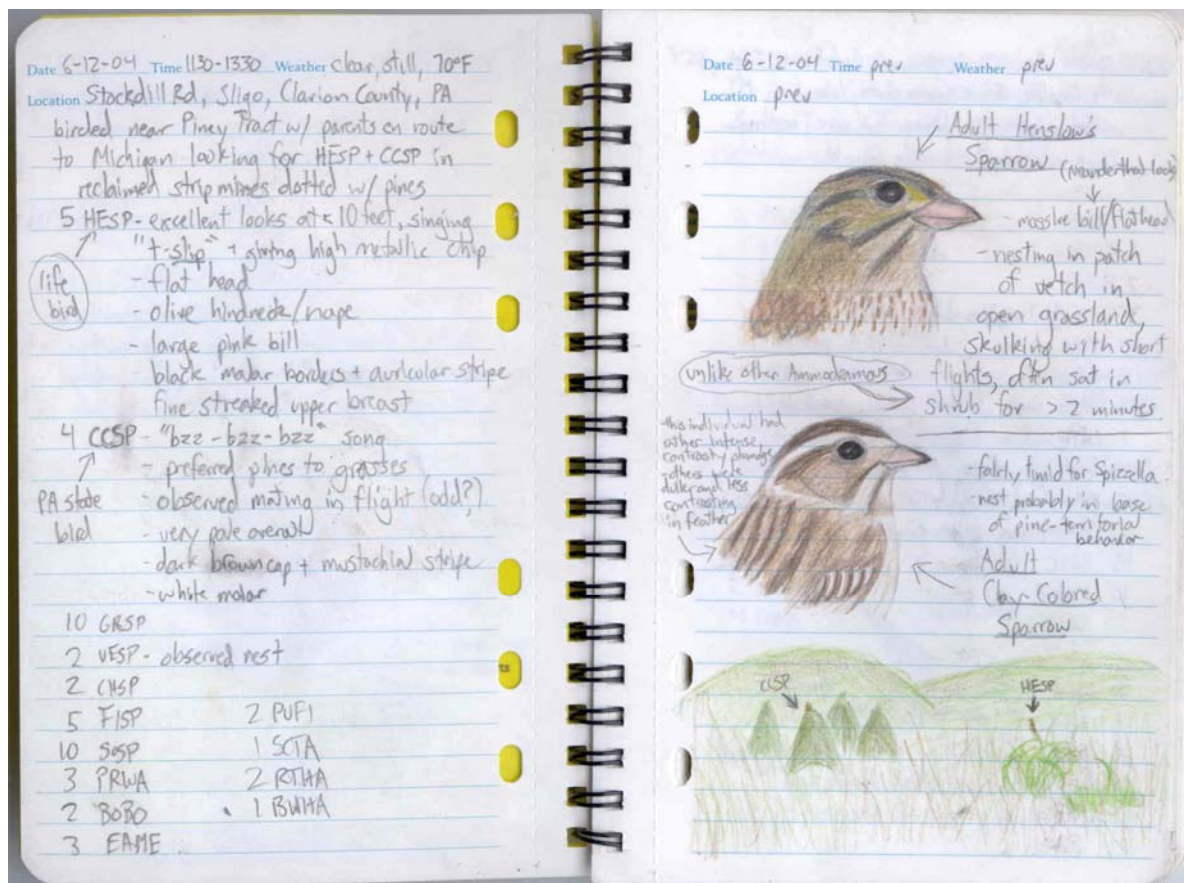 Date 6-12-04 Time 1130-1330 Weather clear, still, 70°F
Location Stockdill Rd, Sligo, Clarion County, PA
birded near Piney Tract w/ parents en route
to Michigan looking for HESP + CCSP in
reclaimed strip mines dotted w/ pines
5 HESP - excellent looks at < 10 feet, singing
"t-slip" + giving high metallic chip
life
bird
- flat head
- olive hindneck/nape
- large pink bill
- black malar borders + auricular stripe
fine streaked upper breast
4 CCSP - "bzz-bzz-bzz" song
- preferred pines to grasses
PA state
bird
- observed mating in flight (odd?)
- very pale overall
- dark brown cap + mustachial stripe
- white malar
10 GRSP
2 VESP - observed nest
2 CHSP
5 FISP
10 SOSP
3 PRWA
2 BOBO
3 EAME
2 PUFI
1 SCTA
2 RTHA
1 BWHA
Date 6-12-04 Time prev Weather prev
Location prev
Adult Henslow's
Sparrow (neanderthal look)
- massive bill/flathead
- nesting in patch
of vetch in
open grassland,
skulking with short
flights, often sat in
shrub for > 2 minutes
unlike other Ammodramus
- this individual had
rather intense,
contrasty plumage
others were
duller and less
contrasting
in feather
- fairly timid for Spizella
- nest probably in base
of pine - territorial
behavior
Adult
Clay-Colored
Sparrow
CCSP
HESP